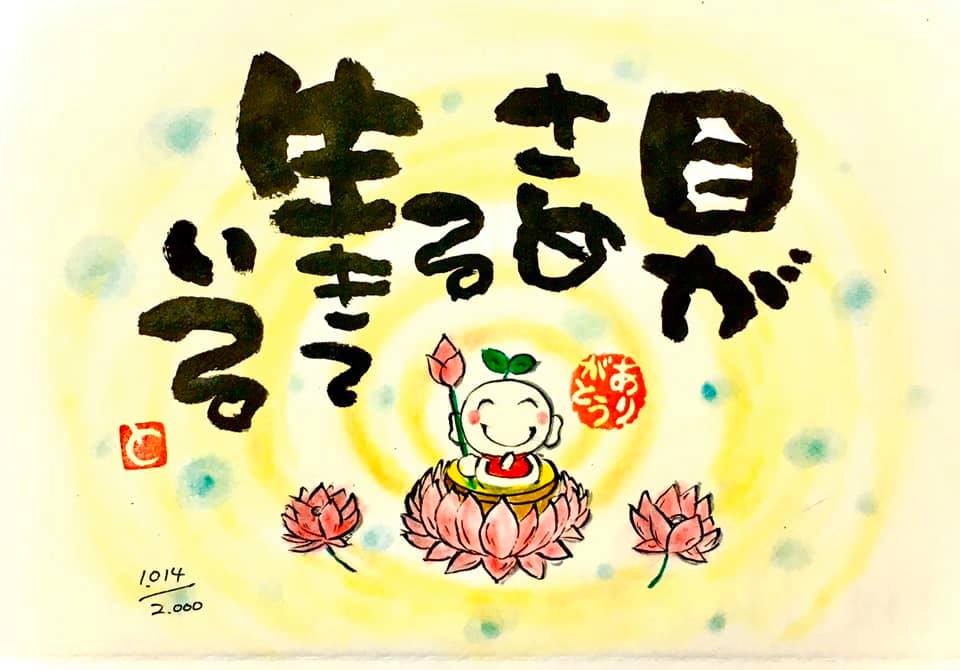 目が
さめる
生きて
いる
ありがとう
と
1.014
2.000